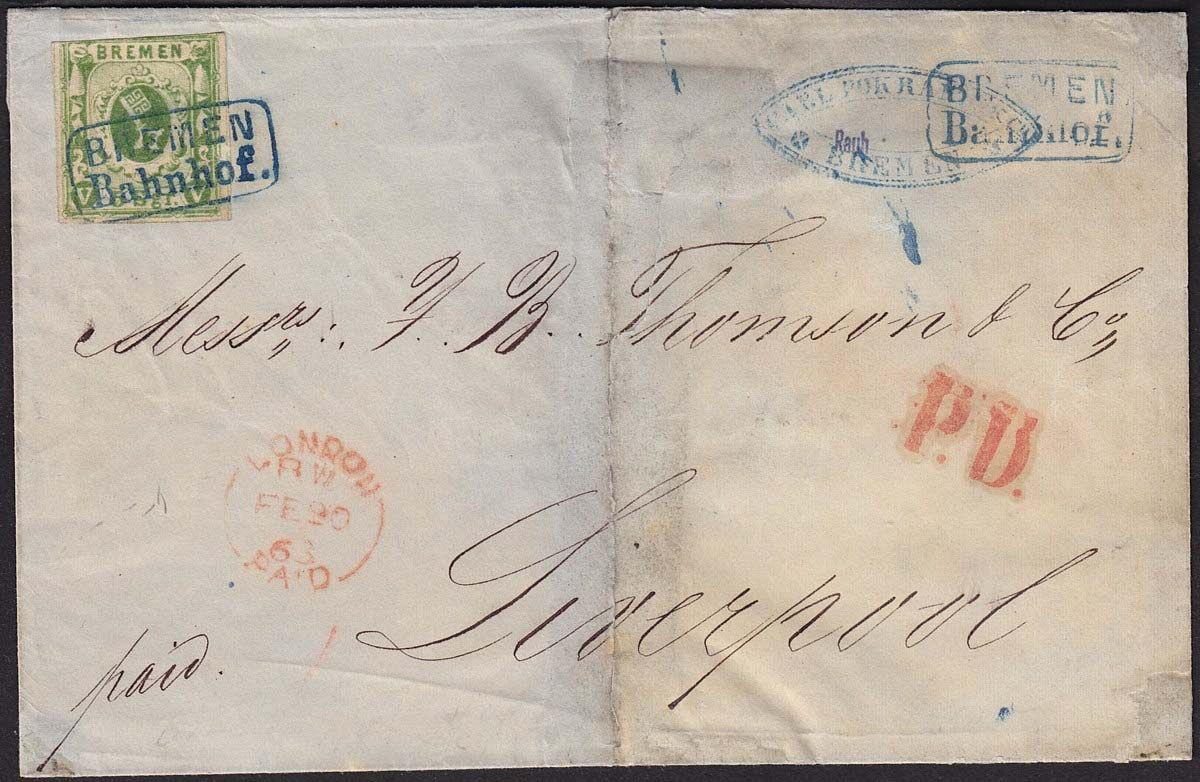 BREMEN
BREMEN
Bahnhof.
Sgr.
CARL POKRA
Rauh
BREMEN
BREMEN
Bahnhof.
Messrs,,: F. B. Thomson & Co,,
P.D.
LONDON
RW
FE 20
63
PAID
Liverpool
paid.